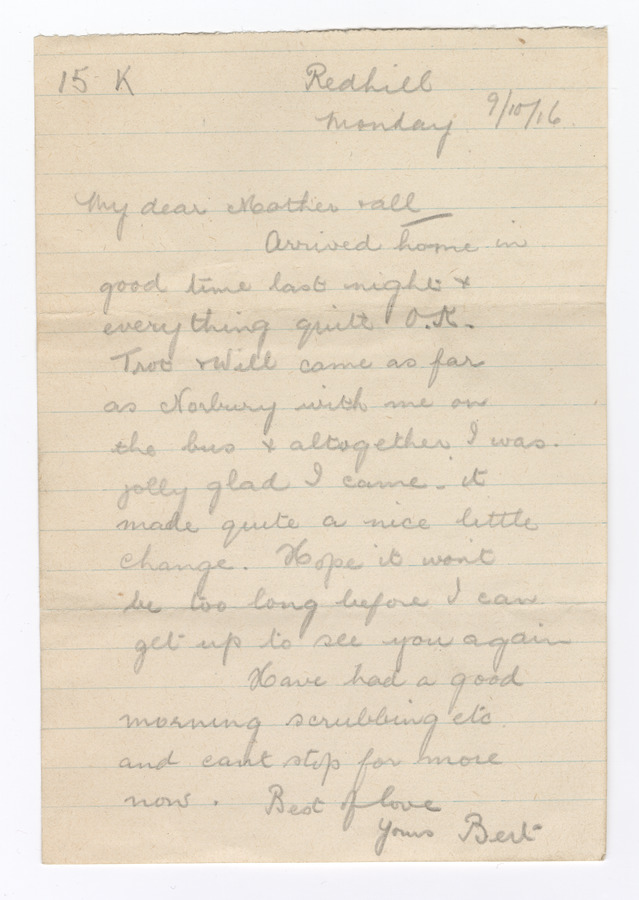 15 K
Redhill
Monday 9/10/16
My dear Mother & all
Arrived home in
good time last night &
everything quite O.K.
Trot & Will came as far
as Norbury with me on
the bus & altogether I was.
jolly glad I came - it
made quite a nice little
change. Hope it wont
be too long before I can
get up to see you again
Have had a good
morning scrubbing etc
and cant stop for more
now. Best of love
Yours Bert